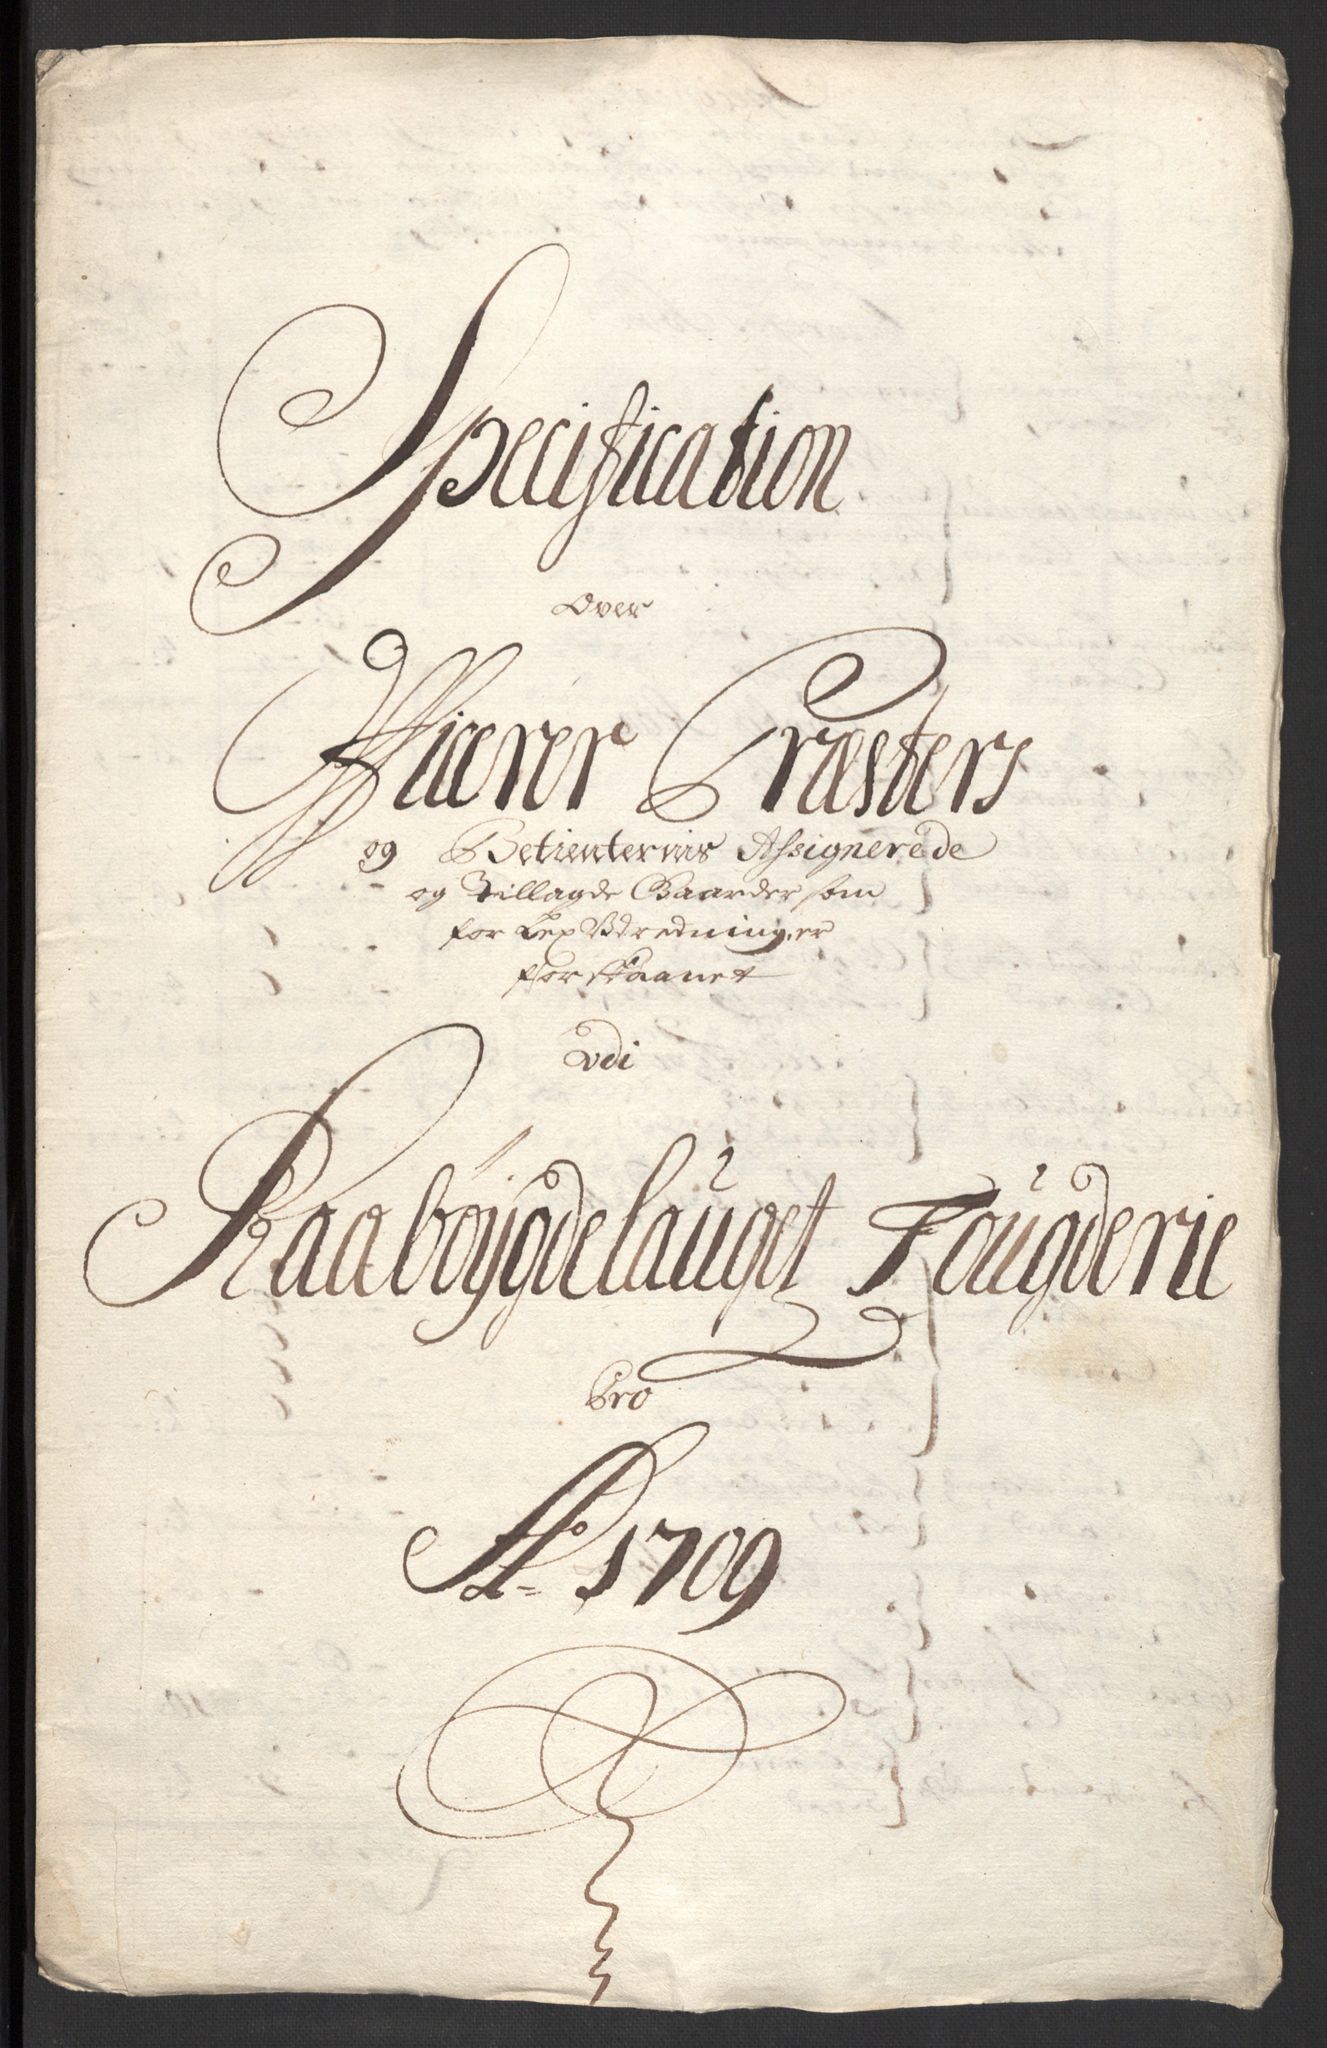 Specification
Over
Officerer Præsters
og Betienternis Assignerede
og Tillagde Gaarder som
for Lex Udredninger er
forskaanet
udi
Raabøÿgdelauget Fougderie
Pro
Ao 1709